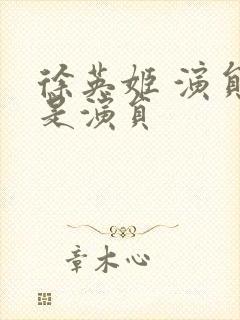 徐英姬 演员
是演员
章木心